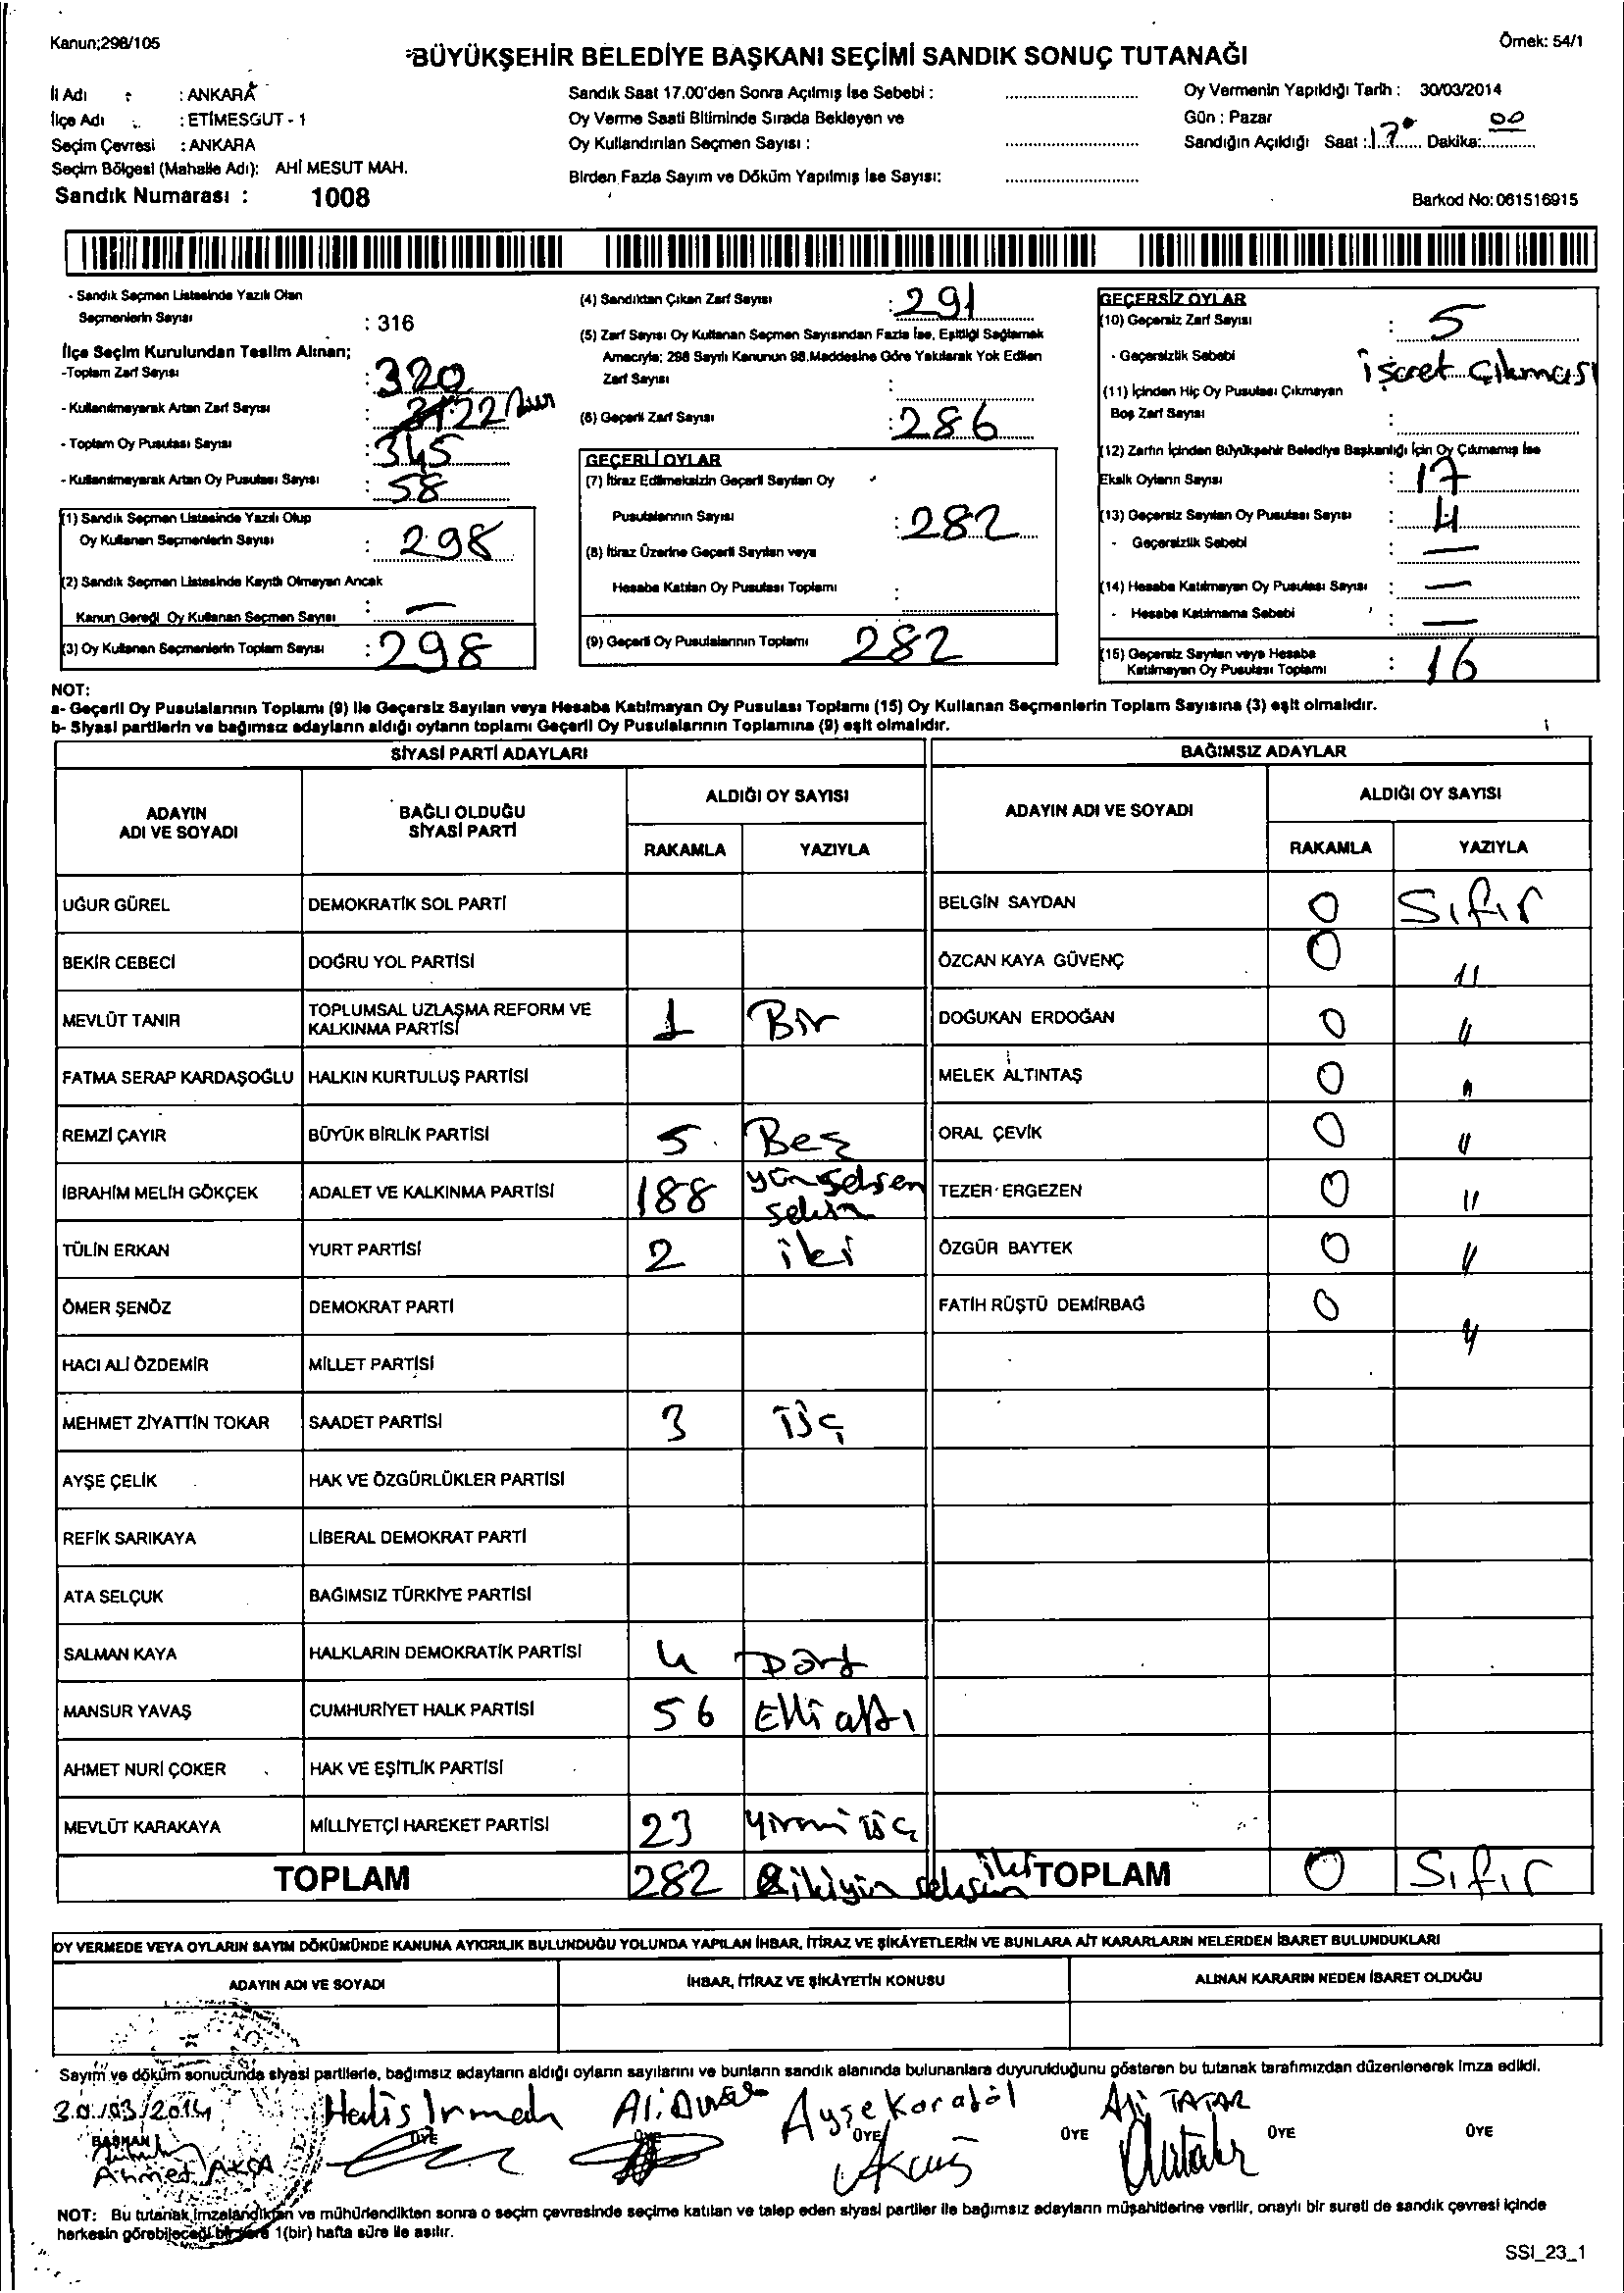 Kanun;298/105
Örnek: 54/1
BÜYÜKŞEHİR BELEDİYE BAŞKANI SEÇİMİ SANDIK SONUÇ TUTANAĞI
İl Adı : : ANKARA
İlçe Adı : : ETİMESGUT - 1
Seçim Çevresi : ANKARA
Seçim Bölgesi (Mahalle Adı): AHİ MESUT MAH.
Sandık Numarası : 1008
Sandık Saat 17.00'den Sonra Açılmış İse Sebebi :
Oy Verme Saati Bitiminde Sırada Bekleyen ve
Oy Kullandırılan Seçmen Sayısı :
Birden Fazla Sayım ve Döküm Yapılmış İse Sayısı:
Oy Vermenin Yapıldığı Tarih : 30/03/2014
Gün : Pazar
Sandığın Açıldığı Saat : 17 Dakika: 00
Barkod No: 061516915
- Sandık Seçmen Listesinde Yazılı Olan
Seçmenlerin Sayısı : 316
İlçe Seçim Kurulundan Teslim Alınan;
-Toplam Zarf Sayısı : 320
- Kullanılmayarak Artan Zarf Sayısı : 22
- Toplam Oy Pusulası Sayısı : 345
- Kullanılmayarak Artan Oy Pusulası Sayısı : 58
(1) Sandık Seçmen Listesinde Yazılı Olup
Oy Kullanan Seçmenlerin Sayısı : 298
(2) Sandık Seçmen Listesinde Kayıtlı Olmayan Ancak
Kanun Gereği Oy Kullanan Seçmen Sayısı : —
(3) Oy Kullanan Seçmenlerin Toplam Sayısı : 298
(4) Sandıktan Çıkan Zarf Sayısı : 291
(5) Zarf Sayısı Oy Kullanan Seçmen Sayısından Fazla İse, Eşitliği Sağlamak
Amacıyla; 298 Sayılı Kanunun 98.Maddesine Göre Yakılarak Yok Edilen
Zarf Sayısı :
(6) Geçerli Zarf Sayısı : 286
GEÇERLİ OYLAR
(7) İtiraz Edilmeksizin Geçerli Sayılan Oy
Pusulalarının Sayısı : 282
(8) İtiraz Üzerine Geçerli Sayılan veya
Hesaba Katılan Oy Pusulası Toplamı :
(9) Geçerli Oy Pusulalarının Toplamı 282
GEÇERSİZ OYLAR
(10) Geçersiz Zarf Sayısı : 5
- Geçersizlik Sebebi işaret Çıkması
(11) İçinden Hiç Oy Pusulası Çıkmayan
Boş Zarf Sayısı :
(12) Zarfın İçinden Büyükşehir Belediye Başkanlığı İçin Oy Çıkmamış İse
Eksik Oyların Sayısı : 17
(13) Geçersiz Sayılan Oy Pusulası Sayısı : 4
- Geçersizlik Sebebi : —
(14) Hesaba Katılmayan Oy Pusulası Sayısı : —
- Hesaba Katılmama Sebebi : —
(15) Geçersiz Sayılan veya Hesaba
Katılmayan Oy Pusulası Toplamı : 16
NOT:
a- Geçerli Oy Pusulalarının Toplamı (9) ile Geçersiz Sayılan veya Hesaba Katılmayan Oy Pusulası Toplamı (15) Oy Kullanan Seçmenlerin Toplam Sayısına (3) eşit olmalıdır.
b- Siyasi partilerin ve bağımsız adayların aldığı oyların toplamı Geçerli Oy Pusulalarının Toplamına (9) eşit olmalıdır.
SİYASİ PARTİ ADAYLARI
BAĞIMSIZ ADAYLAR
ADAYIN ADI VE SOYADI
BAĞLI OLDUĞU SİYASİ PARTİ
ALDIĞI OY SAYISI
RAKAMLA YAZIYLA
ADAYIN ADI VE SOYADI
ALDIĞI OY SAYISI
RAKAMLA YAZIYLA
UĞUR GÜREL DEMOKRATİK SOL PARTİ BELGİN SAYDAN 0 Sıfır
BEKİR CEBECİ DOĞRU YOL PARTİSİ ÖZCAN KAYA GÜVENÇ 0 "
MEVLÜT TANIR TOPLUMSAL UZLAŞMA REFORM VE KALKINMA PARTİSİ 1 Bir DOĞUKAN ERDOĞAN 0 "
FATMA SERAP KARDAŞOĞLU HALKIN KURTULUŞ PARTİSİ MELEK ALTINTAŞ 0 "
REMZİ ÇAYIR BÜYÜK BİRLİK PARTİSİ 5 Beş ORAL ÇEVİK 0 "
İBRAHİM MELİH GÖKÇEK ADALET VE KALKINMA PARTİSİ 188 yüz seksen sekiz TEZER ERGEZEN 0 "
TÜLİN ERKAN YURT PARTİSİ 2 iki ÖZGÜR BAYTEK 0 "
ÖMER ŞENÖZ DEMOKRAT PARTİ FATİH RÜŞTÜ DEMİRBAĞ 0 "
HACI ALİ ÖZDEMİR MİLLET PARTİSİ
MEHMET ZİYATTİN TOKAR SAADET PARTİSİ 3 üç
AYŞE ÇELİK HAK VE ÖZGÜRLÜKLER PARTİSİ
REFİK SARIKAYA LİBERAL DEMOKRAT PARTİ
ATA SELÇUK BAĞIMSIZ TÜRKİYE PARTİSİ
SALMAN KAYA HALKLARIN DEMOKRATİK PARTİSİ 4 Dört
MANSUR YAVAŞ CUMHURİYET HALK PARTİSİ 56 Elli altı
AHMET NURİ ÇOKER HAK VE EŞİTLİK PARTİSİ
MEVLÜT KARAKAYA MİLLİYETÇİ HAREKET PARTİSİ 23 Yirmi üç
TOPLAM 282 ikiyüz seksen iki TOPLAM 0 Sıfır
OY VERMEDE VEYA OYLARIN SAYIM DÖKÜMÜNDE KANUNA AYKIRILIK BULUNDUĞU YOLUNDA YAPILAN İHBAR, İTİRAZ VE ŞİKÂYETLERİN VE BUNLARA AİT KARARLARIN NELERDEN İBARET BULUNDUKLARI
ADAYIN ADI VE SOYADI İHBAR, İTİRAZ VE ŞİKÂYETİN KONUSU ALINAN KARARIN NEDEN İBARET OLDUĞU
Sayım ve döküm sonucunda siyasi partilerle, bağımsız adayların aldığı oyların sayılarını ve bunların sandık alanında bulunanlara duyurulduğunu gösteren bu tutanak tarafımızdan düzenlenerek imza edildi.
30/03/2014 Halis Irmak Ali Ayşe Karagöl Ali TATAR
BAŞKAN ÜYE ÜYE ÜYE ÜYE ÜYE ÜYE
Ahmet AKÇA
NOT: Bu tutanak imzalandıktan ve mühürlendikten sonra o seçim çevresinde seçime katılan ve talep eden siyasi partiler ile bağımsız adayların müşahitlerine verilir, onaylı bir sureti de sandık çevresi içinde
herkesin görebileceği bir yere 1(bir) hafta süre ile asılır.
SSI_23_1